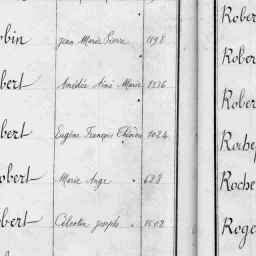 obin Jean Marie Pierre 1198
bert Amédée Aimé Marie 1336
bert Eugène François 1024
obert Marie Ange 628
obert Célestin Joseph 1502
Rober
Rober
Rober
Roche
Roche
Roge